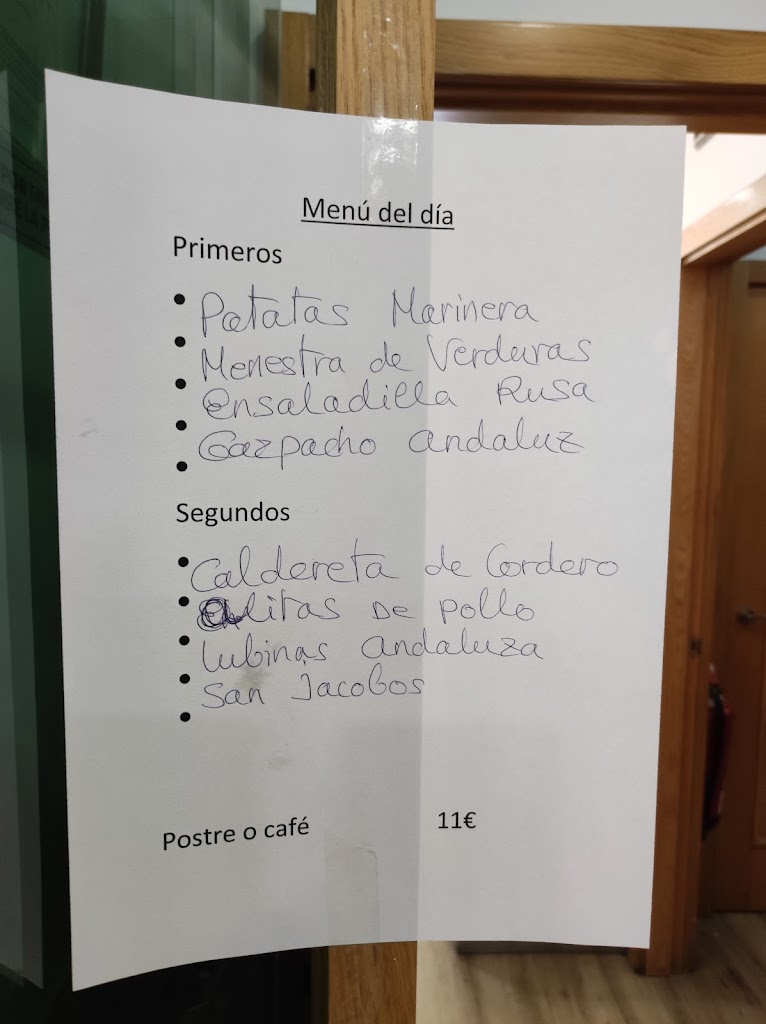 Menú del día
Primeros
• Patatas Marinera
• Menestra de Verduras
• Ensaladilla Rusa
• Gazpacho andaluz
•
Segundos
• Caldereta de Cordero
• alitas De pollo
• Lubinas andaluza
• San Jacobos
•
Postre o café 11€